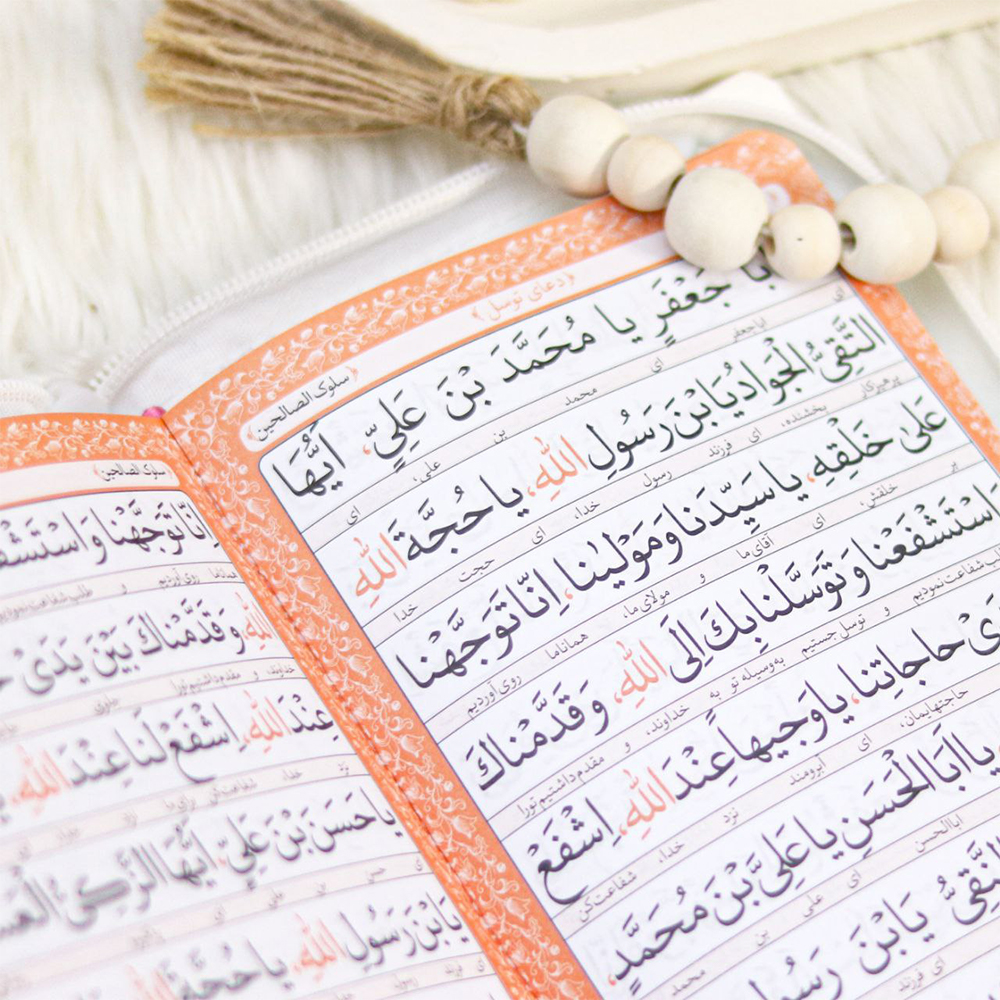 ﴿دعای توسل﴾
﴿سلوک الصالحین﴾
اَبا جَعْفَرٍ یا مُحَمَّدَ بْنَ عَلِیٍّ، اَیُّهَا
ای اباجعفر ای محمد بن علی، ای
التَّقِیُّ الْجَوادُ یَا بْنَ رَسُولِ اللهِ، یا حُجَّةَ اللهِ
پرهیزکار بخشنده، ای فرزند رسول خدا، ای حجت خدا
عَلیٰ خَلْقِهِ، یا سَیِّدَنا وَمَوْلیٰنا، اِنّا تَوَجَّهْنا
بر خلقش، ای آقای ما و مولای ما، همانا ما روی آوردیم
وَاسْتَشْفَعْنا وَتَوَسَّلْنا بِكَ اِلَی اللهِ، وَقَدَّمْناكَ
طلب شفاعت نمودیم و توسل جستیم به وسیله تو به خداوند، و مقدم داشتیم تورا
حاجاتِنا، یا وَجیهاً عِنْدَ اللهِ، اِشْفَعْ
حاجتهایمان، ای آبرومند نزد خدا، شفاعت کن
یا اَبَا الْحَسَنِ یا عَلِیَّ بْنَ مُحَمَّدٍ،
ابا الحسن ای علی بن محمد
النَّقِیُّ یَا بْنَ رَسُولِ
ای فرزند
﴿سلوک الصالحین﴾
اِنّا تَوَجَّهْنا وَاسْتَشْفَ
همانا ما روی آوردیم و طلب شفاعت نمودیم
اللهِ، وَقَدَّمْناكَ بَیْنَ یَدَیْ
خداوند، و مقدم داشتیم تورا
عِنْدَ اللهِ، اِشْفَعْ لَنا عِنْدَ اللهِ،
نزد خدا، شفاعت کن برای ما نزد
یا حَسَنَ بْنَ عَلِیٍّ، اَیُّهَا الزَّكِیُّ
ای حسن بن علی
یَا بْنَ رَسُولِ اللهِ، یا حُجَّةَ
ای فرزند رسول